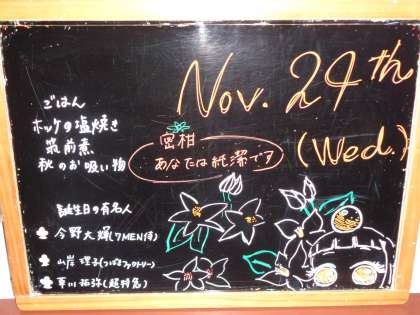 Nov. 24th
(Wed.)
ごはん
ホッケの塩焼き
筑前煮
秋のお吸い物
蜜柑
あなたは純潔です
誕生日の有名人
今野大輝(7MEN侍)
山岸理子(つばきファクトリー)
草川拓弥(超特急)